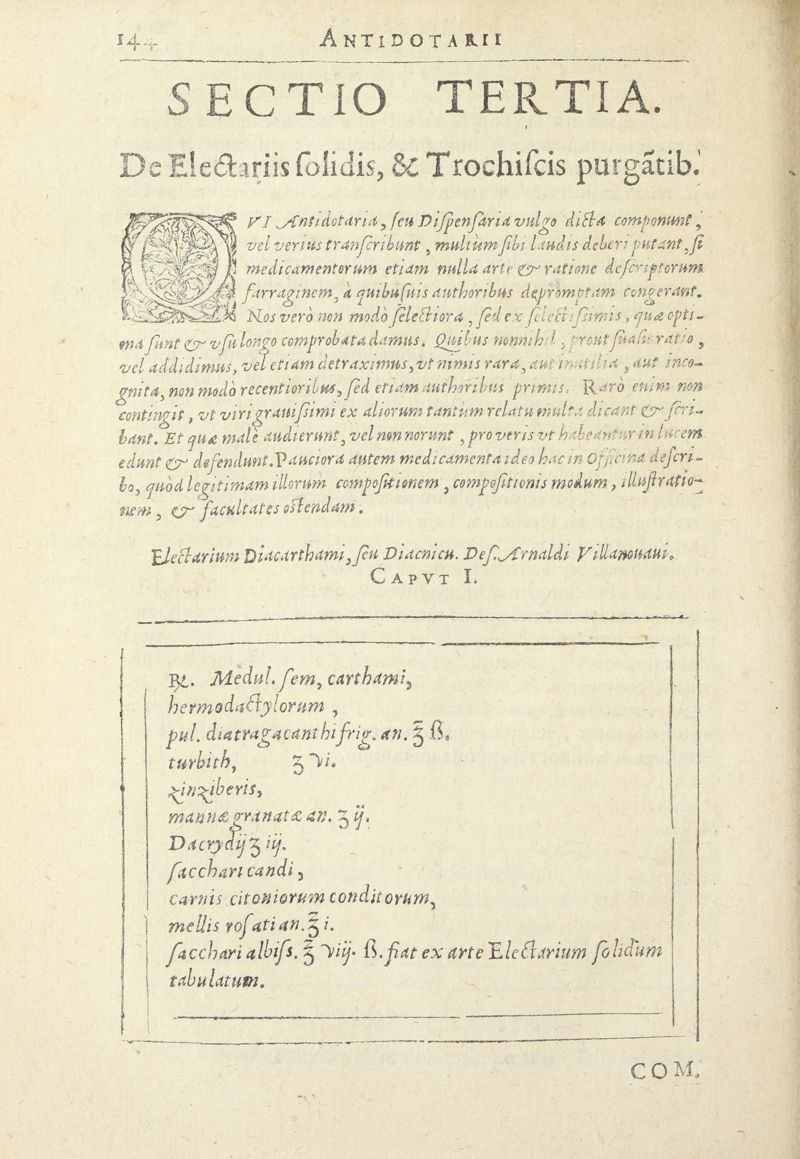 144 ANTIDOTARII
SECTIO TERTIA.
De Electariis ſolidis, & Trochiſcis purgãtib.
QVI Antidotaria, ſeu Diſpenſaria vulgo dicta componunt,
vel verius tranſcribunt, multum ſibi laudis deberi putant, ſi
medicamentorum etiam nulla arte & ratione deſcriptorum
farraginem, à quibuſuis authoribus depromptam congerant.
Nos verò non modò ſelectiora, ſed ex ſelectiſsimis, quæ opti-
ma ſunt & vſu longo comprobata damus. Quibus nonnihil, prout ſuaſit ratio,
vel addidimus, vel etiam detraximus, vt nimis rara, aut inutilia, aut inco-
gnita, non modò recentioribus, ſed etiam authoribus primis. Rarò enim non
contingit, vt viri grauiſsimi ex aliorum tantum relatu multa dicant & ſcri-
bant. Et quæ malè audierunt, vel non norunt, pro veris vt habeantur in lucem
edunt & defendunt. Pauciora autem medicamenta ideo hac in Officina deſcri-
bo, quòd legitimam illorum compoſitionem, compoſitionis modum, illuſtratio-
nem, & facultates oſtendam.
Electarium Diacarthami, ſeu Diacnicu. Deſ. Arnaldi Villanouaui.
CAPVT I.
℞. Medul. ſem, carthami,
hermodactylorum,
pul. diatragacanthi frig. an. ℥ ß.
turbith, ʒ vi.
zinziberis,
mannæ granatæ an. ʒ ij.
Dacrydij ʒ iij.
ſacchari candi,
carnis citoniorum conditorum,
mellis roſati an. ℥ i.
ſacchari albiſs. ℥ viij. ß. fiat ex arte Electarium ſolidum
tabulatum.
COM.